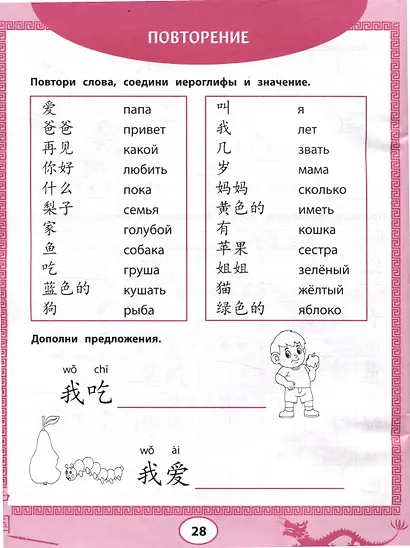 ПОВТОРЕНИЕ
Повтори слова, соедини иероглифы и значение.
爱 папа
爸爸 привет
再见 какой
你好 любить
什么 пока
梨子 семья
家 голубой
鱼 собака
吃 груша
蓝色的 кушать
狗 рыба
叫 я
我 лет
几 звать
岁 мама
妈妈 сколько
黄色的 иметь
有 кошка
苹果 сестра
姐姐 зелёный
猫 жёлтый
绿色的 яблоко
Дополни предложения.
wǒ chī
我吃
wǒ ài
我爱
28